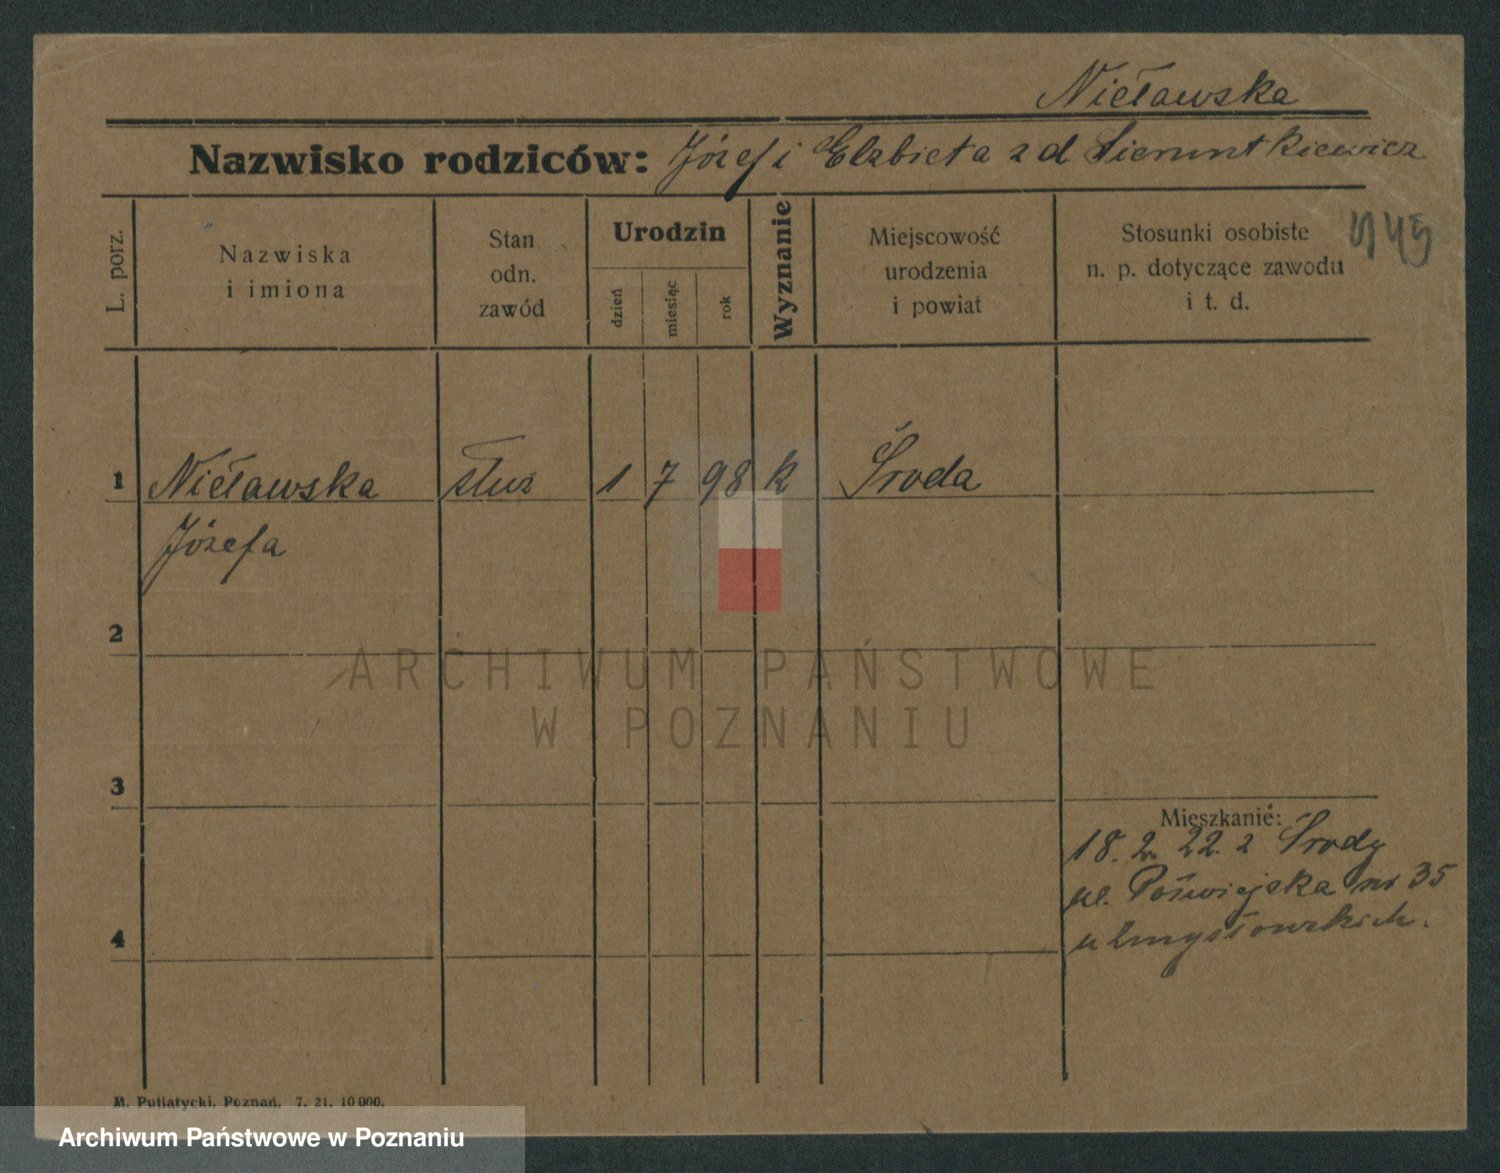 Niełtawska
Nazwisko rodziców: Józef i Elzbieta z d
L. porz.
Nazwiska
i imiona
Stan
odn.
zawód
Urodzin
dzień
miesiąc
rok
Wyznanie
Miejscowość
urodzenia
i powiat
Stosunki osobiste
n. p. dotyczące zawodu
i t. d.
445
1 Niełtawska służ 1 7 98 k Środa
Józefa
2
ARCHIWUM PAŃSTWOWE
W POZNANIU
3
Mieszkanie:
18. 2. 22. z Środy
ul. nr 35
4
M. Putiatycki, Poznań. 7. 21. 10 000.
Archiwum Państwowe w Poznaniu